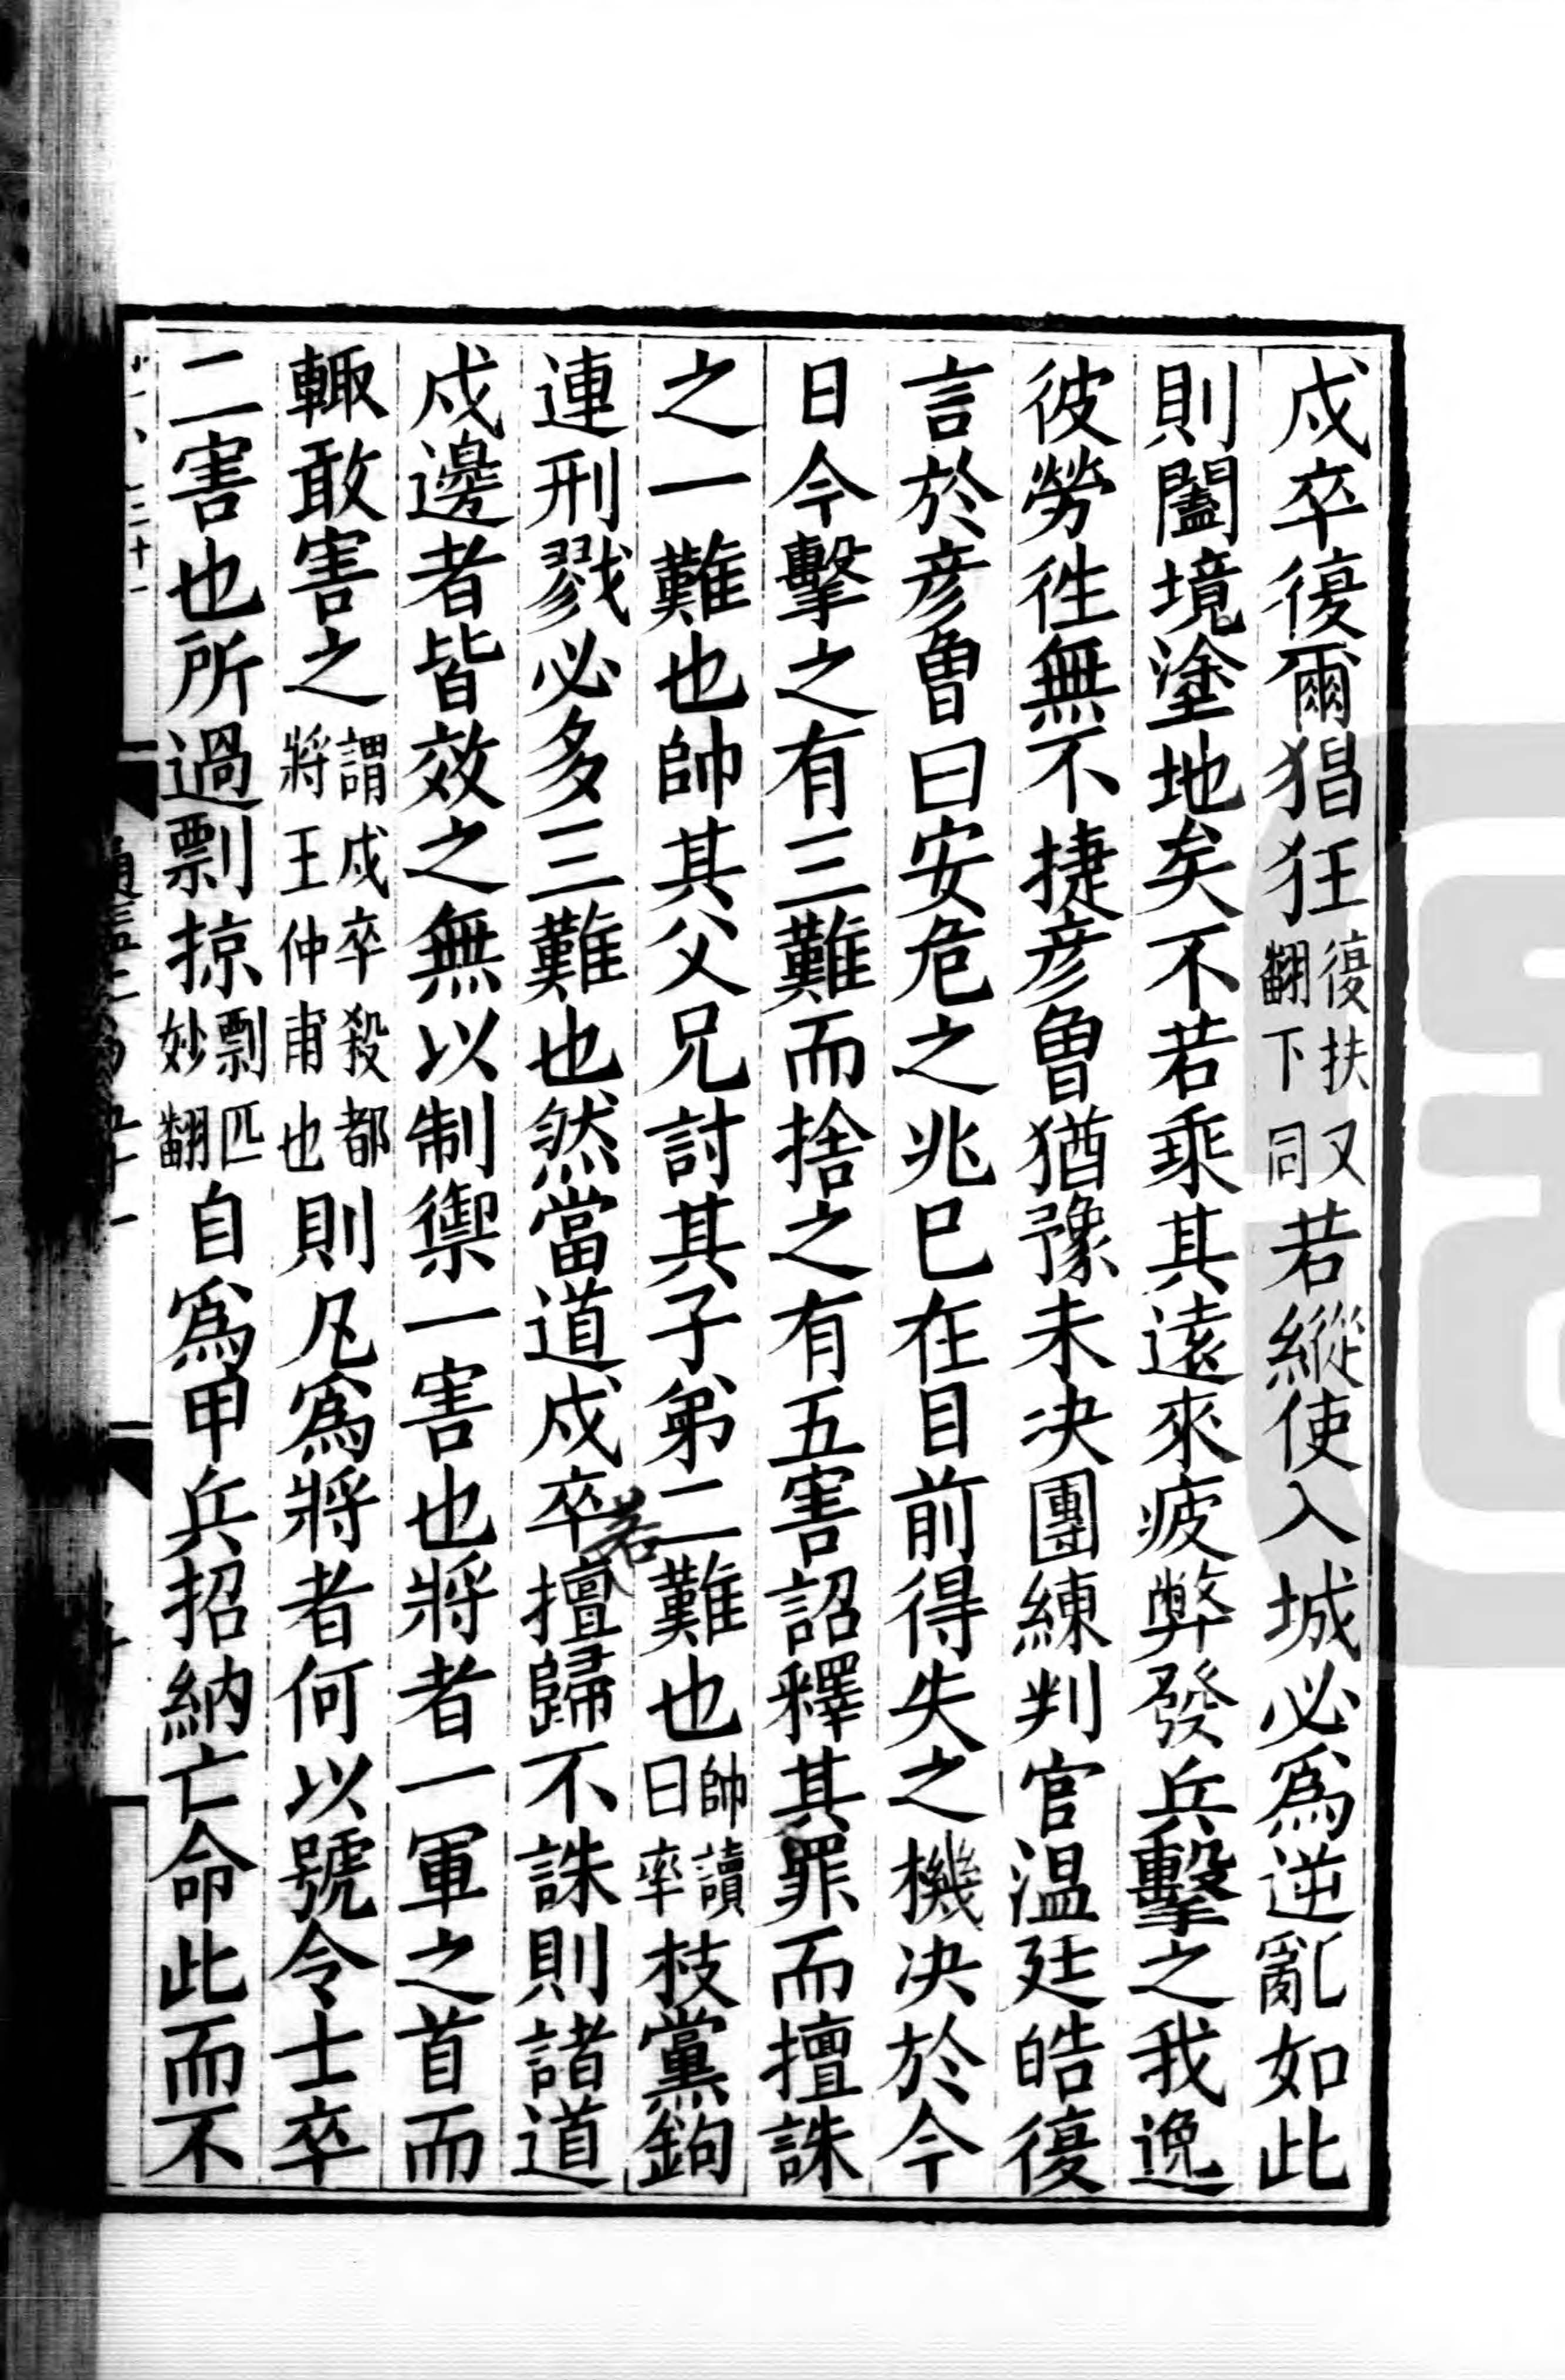 戍卒復爾猖狂復扶又翻下同若縱使入城必爲逆亂如此
則闔境塗地矣不若乘其遠來疲弊發兵擊之我逸
彼勞徃無不捷彦曾猶豫未决團練判官温廷皓復
言於彦曾曰安危之兆巳在目前得失之機决於今
日今擊之有三難而捨之有五害詔釋其罪而擅誅
之一難也帥其父兄討其子弟二難也帥讀曰率枝黨鉤
連刑戮必多三難也然當道戍卒擅歸不誅則諸道
戍邊者皆效之無以制禦一害也將者一軍之首而
輙敢害之謂戍卒殺都將王仲甫也則凡爲將者何以號令士卒
二害也所過剽掠剽匹妙翻自爲甲兵招納亡命此而不
若